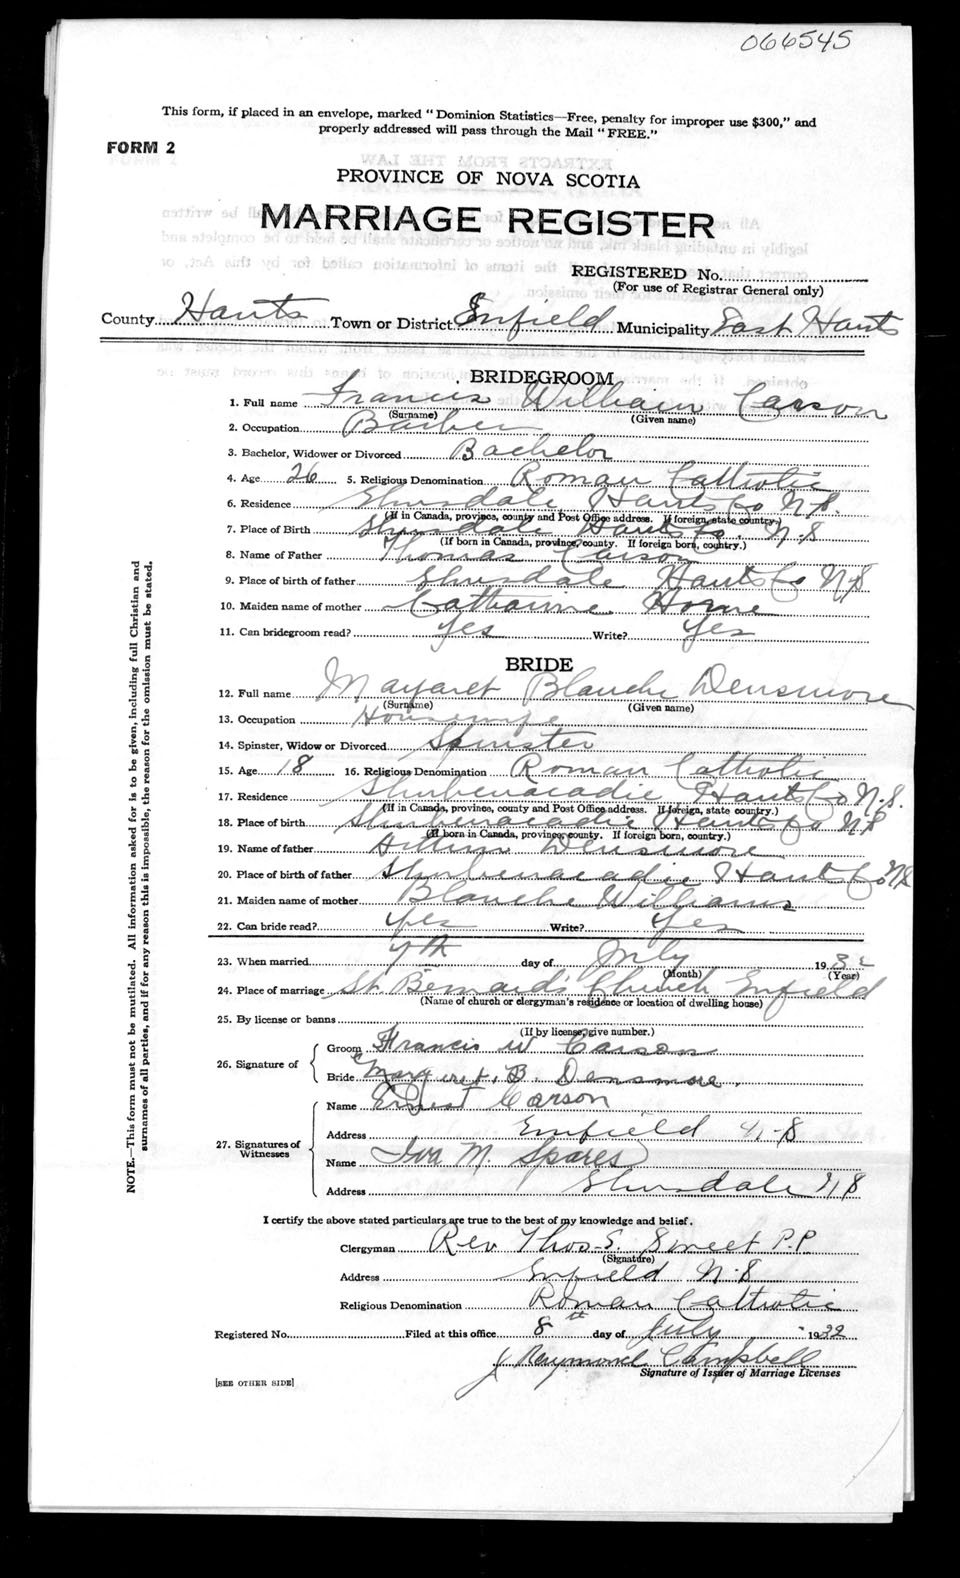 066545
This form, if placed in an envelope, marked "Dominion Statistics—Free, penalty for improper use $300," and
properly addressed will pass through the Mail "FREE."
FORM 2
PROVINCE OF NOVA SCOTIA
MARRIAGE REGISTER
REGISTERED No.
(For use of Registrar General only)
County Hants Town or District Enfield Municipality East Hants
BRIDEGROOM
1. Full name Francis William Carson
(Surname) (Given name)
2. Occupation Barber
3. Bachelor, Widower or Divorced Bachelor
4. Age 26 5. Religious Denomination Roman Catholic
6. Residence Elmsdale Hants Co N.S.
(If in Canada, province, county and Post Office address. If foreign, state country.)
7. Place of Birth Elmsdale Hants Co. N.S
(If born in Canada, province, county. If foreign born, country.)
8. Name of Father Thomas Carson
9. Place of birth of father Elmsdale Hants Co N.S
10. Maiden name of mother Catharine Horne
11. Can bridegroom read? Yes Write? Yes
BRIDE
12. Full name Margaret Blanche Densmore
(Surname) (Given name)
13. Occupation
14. Spinster, Widow or Divorced Spinster
15. Age 18 16. Religious Denomination Roman Catholic
17. Residence Shubenacadie Hants Co N.S.
(If in Canada, province, county and Post Office address. If foreign, state country.)
18. Place of birth Shubenacadie Hants Co N.S
(If born in Canada, province, county. If foreign born, country.)
19. Name of father Densmore
20. Place of birth of father Shubenacadie Hants Co N.S
21. Maiden name of mother Blanche Williams
22. Can bride read? Yes Write? Yes
23. When married 7th day of July 1932
(Month) (Year)
24. Place of marriage St Bernard's Church Enfield
(Name of church or clergyman's residence or location of dwelling house)
25. By license or banns
(If by license, give number.)
26. Signature of Groom Francis W Carson
Bride Margaret. B. Densmore.
27. Signatures of Witnesses Name Ernest Carson
Address Enfield N.S
Name Iva M. Spares
Address Elmsdale N S
I certify the above stated particulars are true to the best of my knowledge and belief.
Clergyman Rev Thos. S. Sweet P.P.
(Signature)
Address Enfield N.S
Religious Denomination Roman Catholic
Registered No. Filed at this office 8th day of July 1932
J Raymond Campbell
Signature of Issuer of Marriage Licenses
[SEE OTHER SIDE]
NOTE.—This form must not be mutilated. All information asked for is to be given, including full Christian and
surnames of all parties, and if for any reason this is impossible, the reason for the omission must be stated.